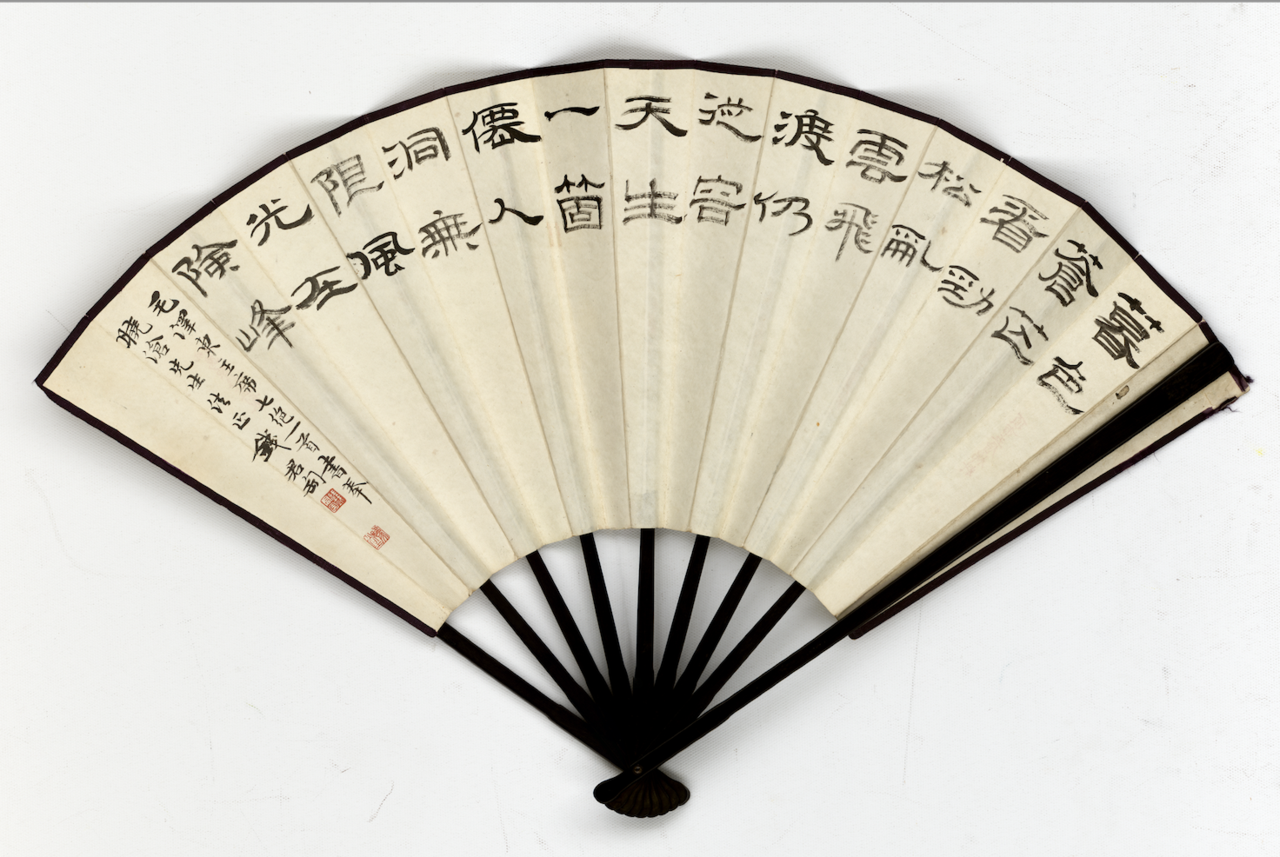 暮色
蒼茫
看勁
松亂
雲飛
渡仍
從容
天生
一箇
僊人
洞無
限風
光在
險峰
毛澤東主席七絕一首書奉
曉滄先生法正 錢君匋